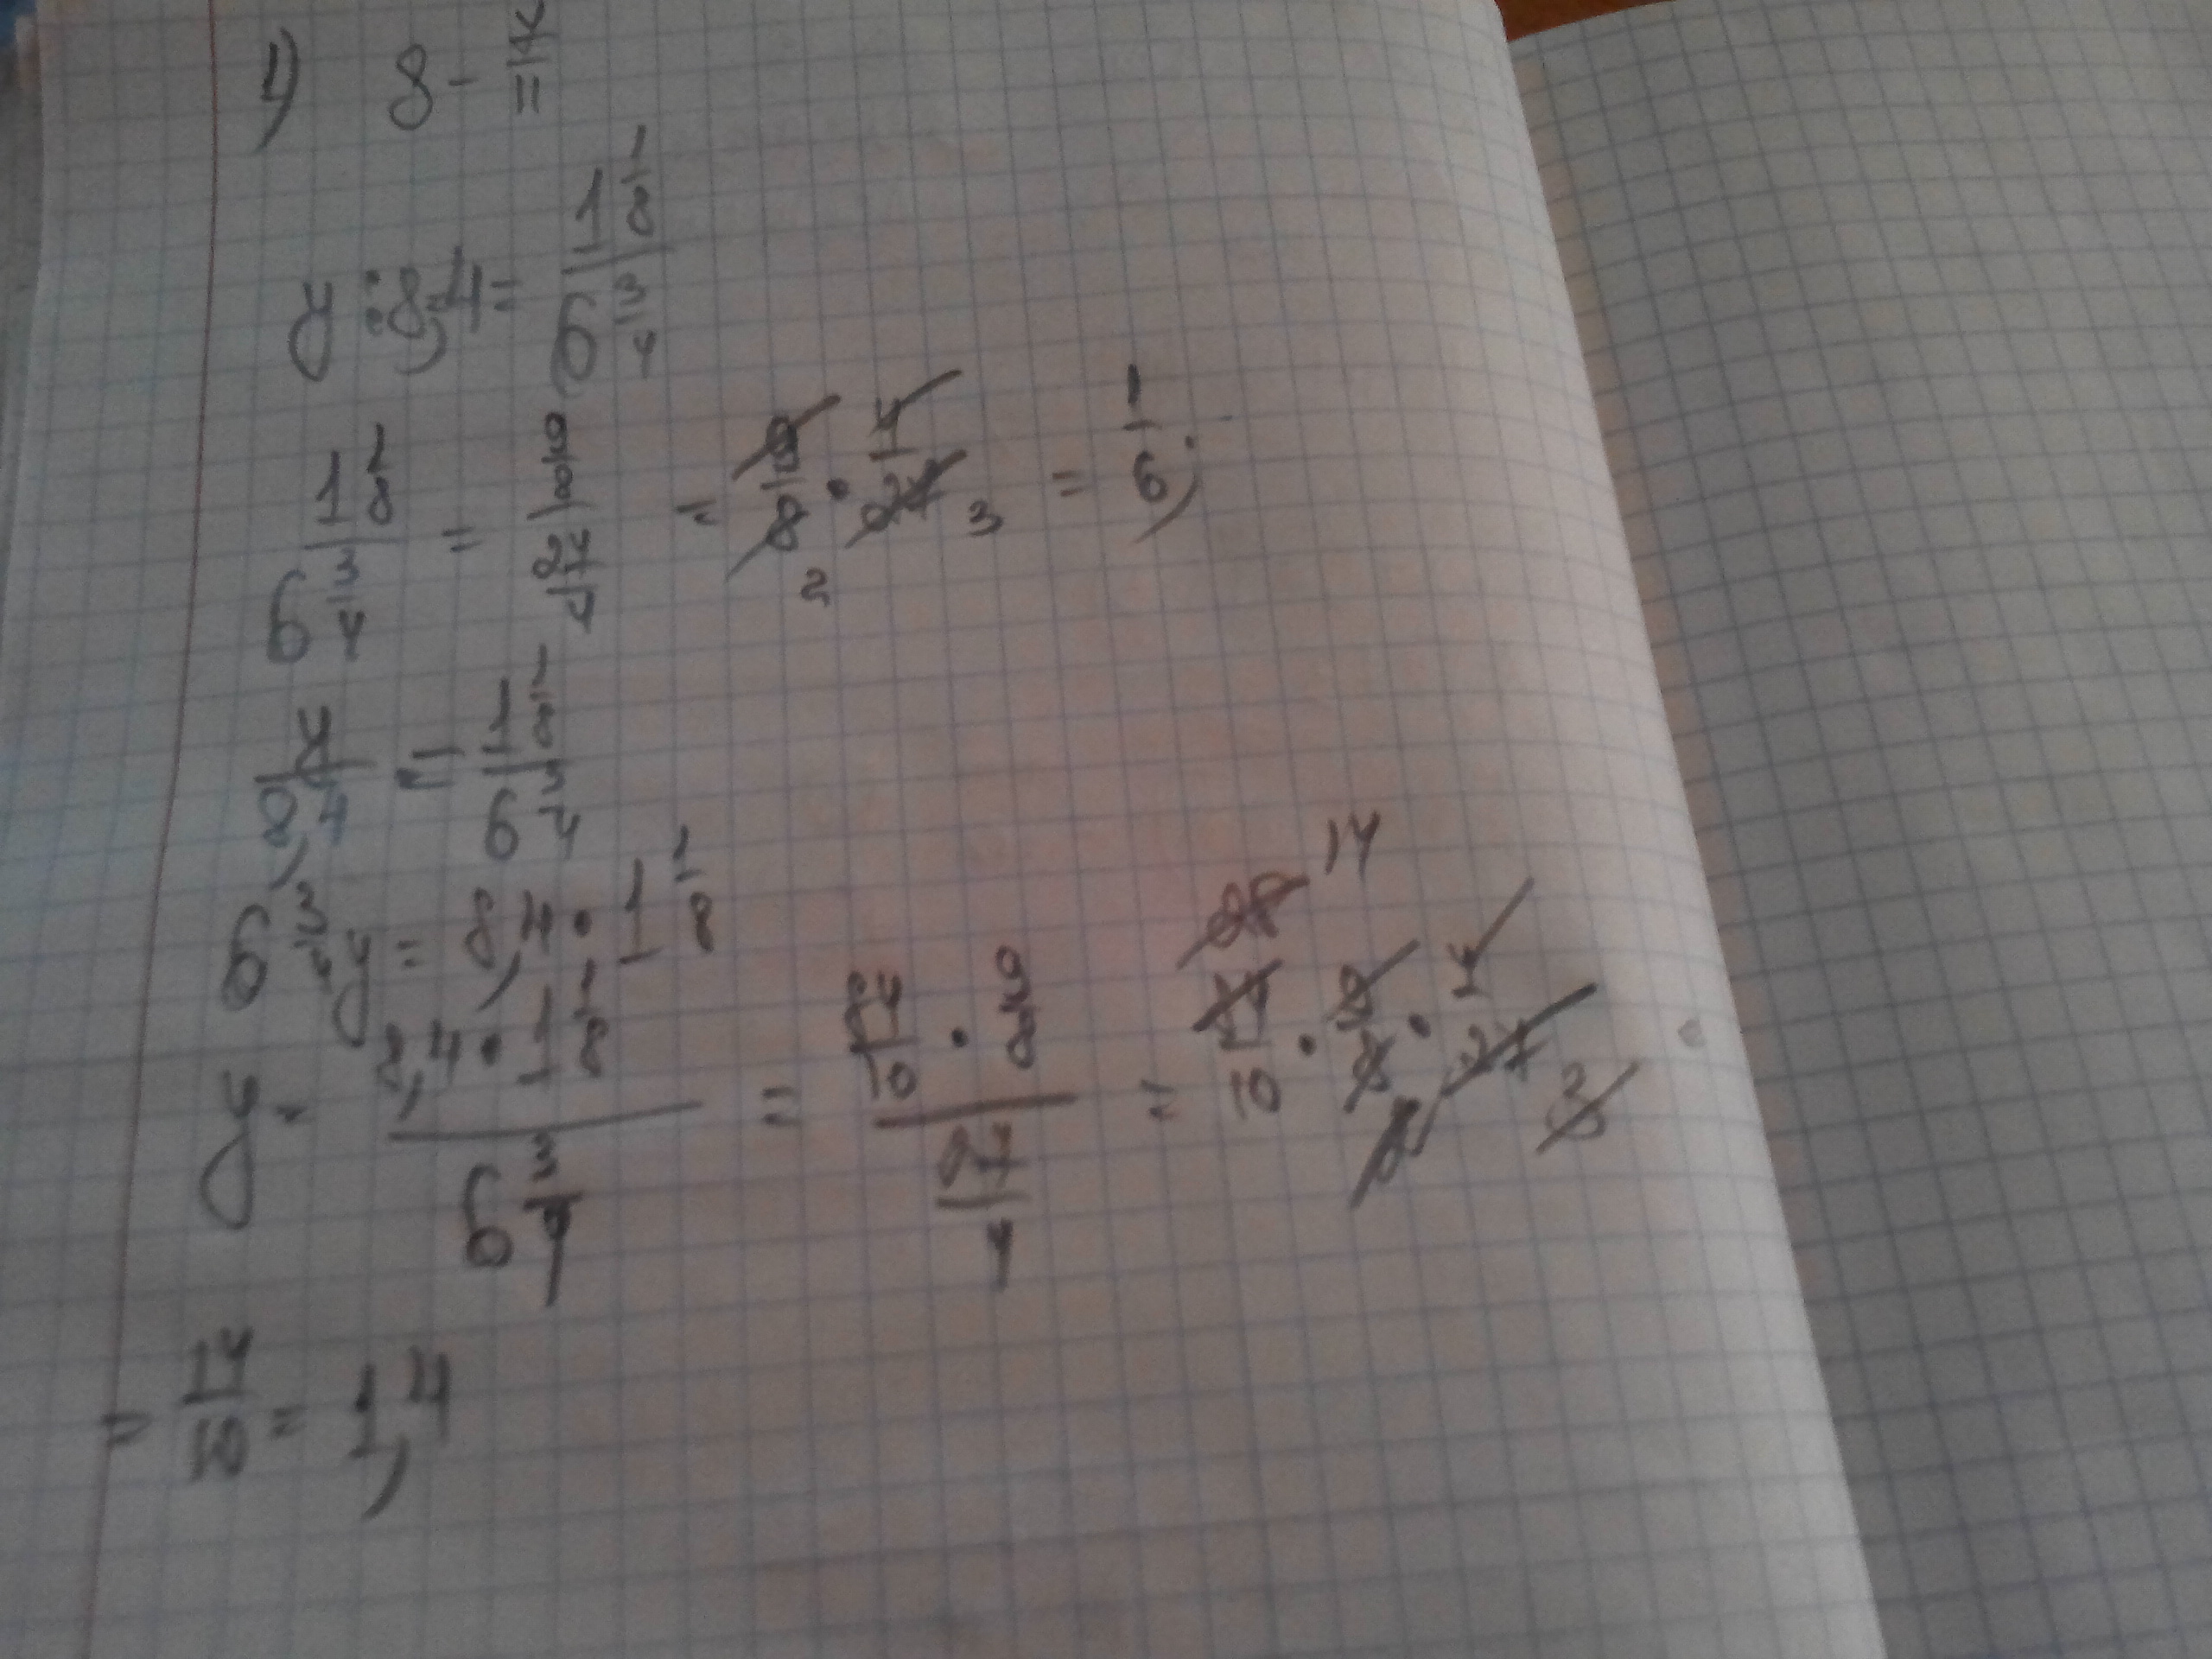 1) 8 -
y : 8,4 = 1 1/8 / 6 3/4
1 1/8 / 6 3/4 = 9/8 / 27/4 = 9/8 · 4/27 2 3 = 1/6;
y/8,4 = 1 1/8 / 6 3/4
6 3/4 y = 8,4 · 1 1/8
y = 8,4 · 1 1/8 / 6 3/4 = 84/10 · 9/8 / 27/4 = 28 14 84/10 · 9/8 · 4/27 2 3
= 14/10 = 1,4